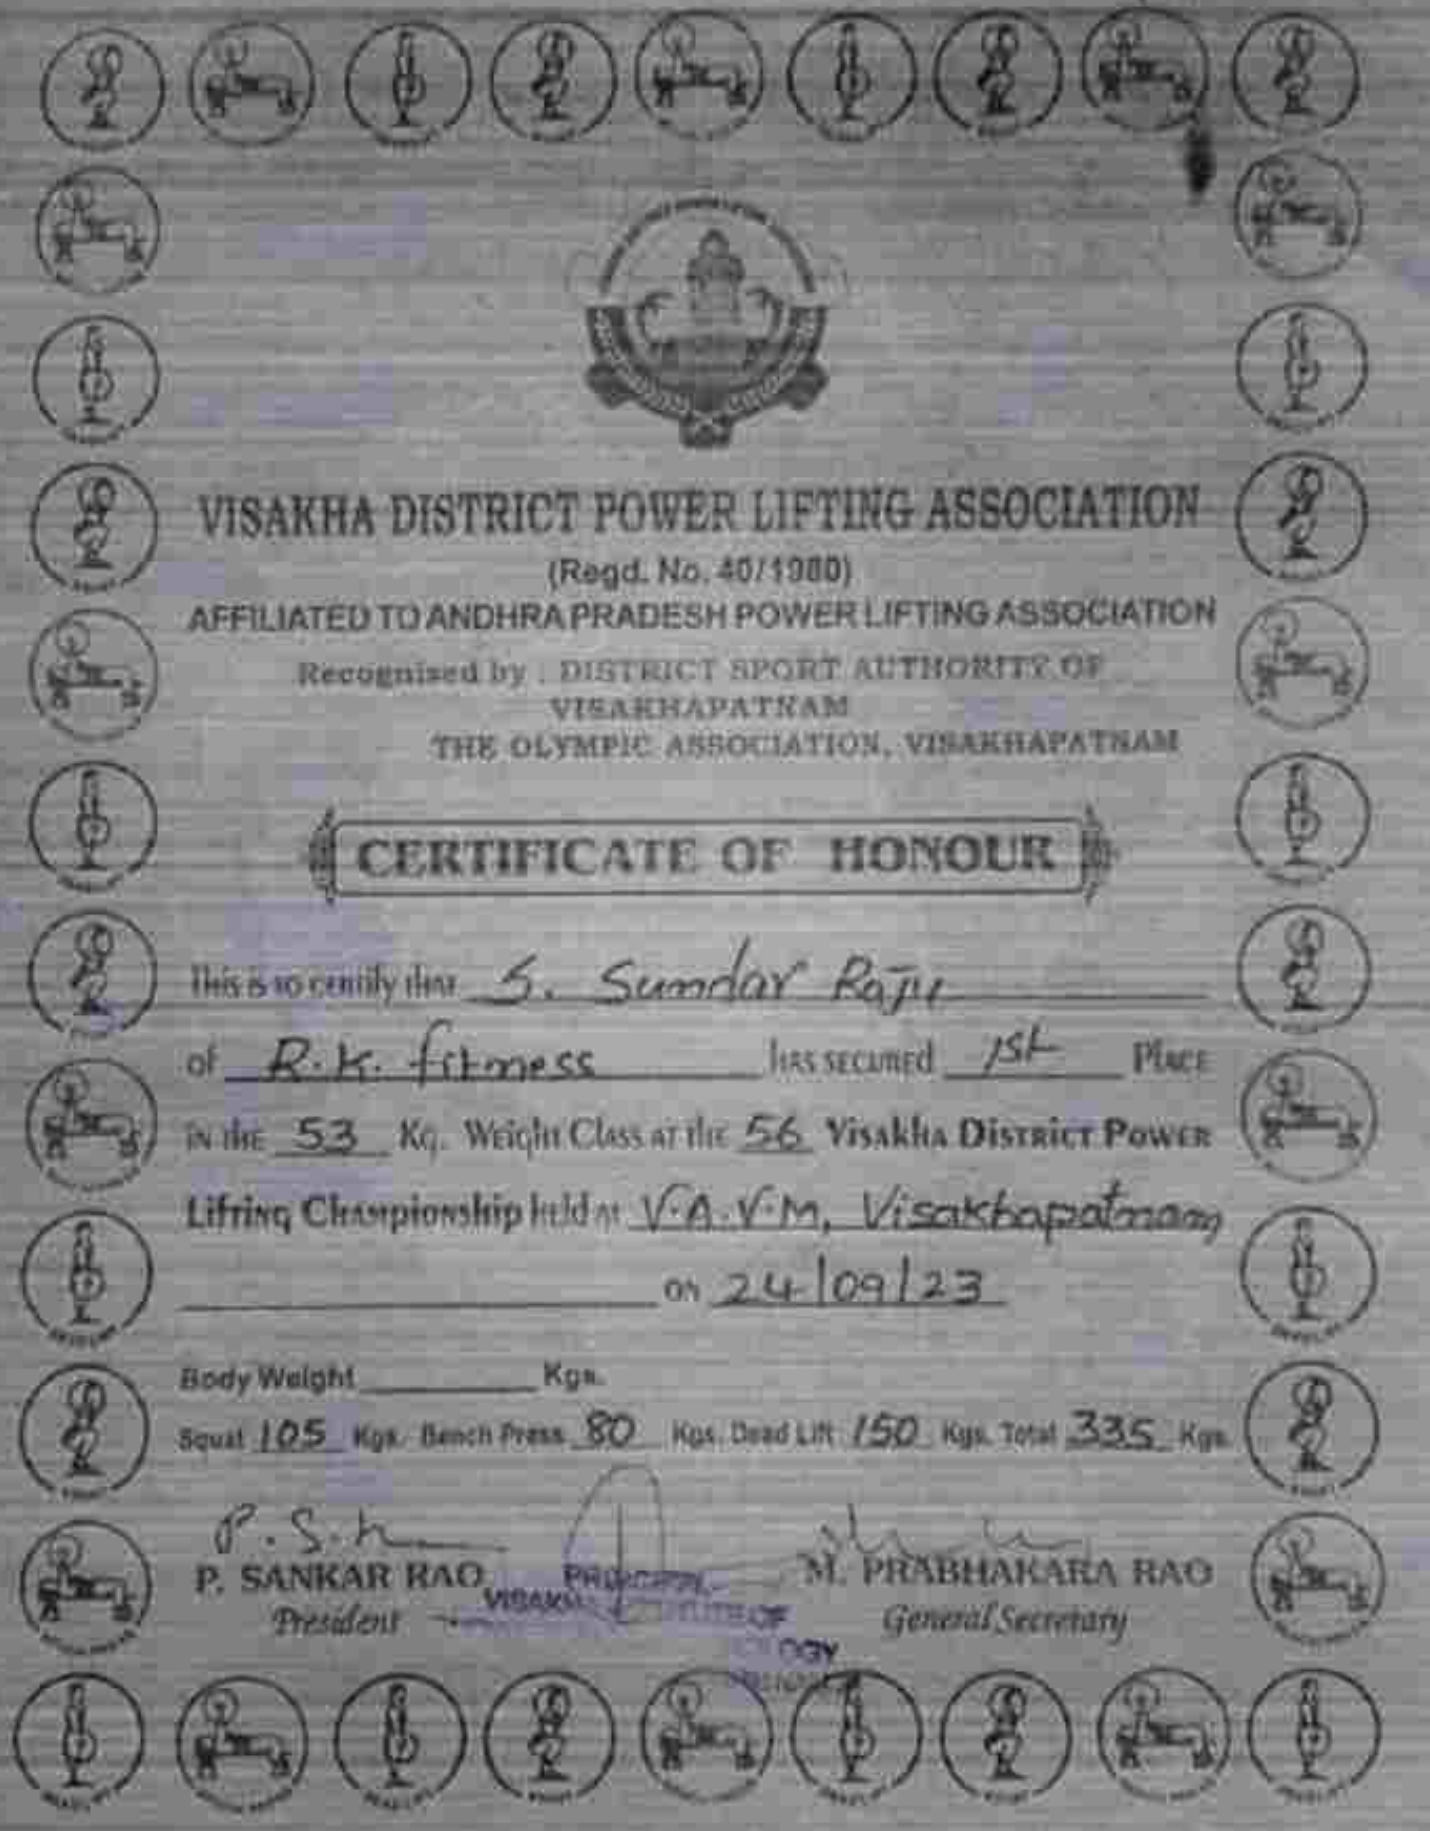 VISAKHA DISTRICT POWER LIFTING ASSOCIATION
(Regd. No. 40/1980)
AFFILIATED TO ANDHRA PRADESH POWER LIFTING ASSOCIATION
Recognised by : DISTRICT SPORT AUTHORITY OF
VISAKHAPATNAM
THE OLYMPIC ASSOCIATION, VISAKHAPATNAM
CERTIFICATE OF HONOUR
This is to certify that S. Sundar Raju
of R.K. fitness has secured 1st Place
in the 53 Kg. Weight Class at the 56 Visakha District Power
Lifting Championship held at V.A.V.M, Visakhapatnam
on 24/09/23
Body Weight Kgs.
Squat 105 Kgs. Bench Press 80 Kgs. Dead Lift 150 Kgs. Total 335 Kgs.
P. SANKAR RAO M. PRABHAKARA RAO
President General Secretary
PRINCIPAL